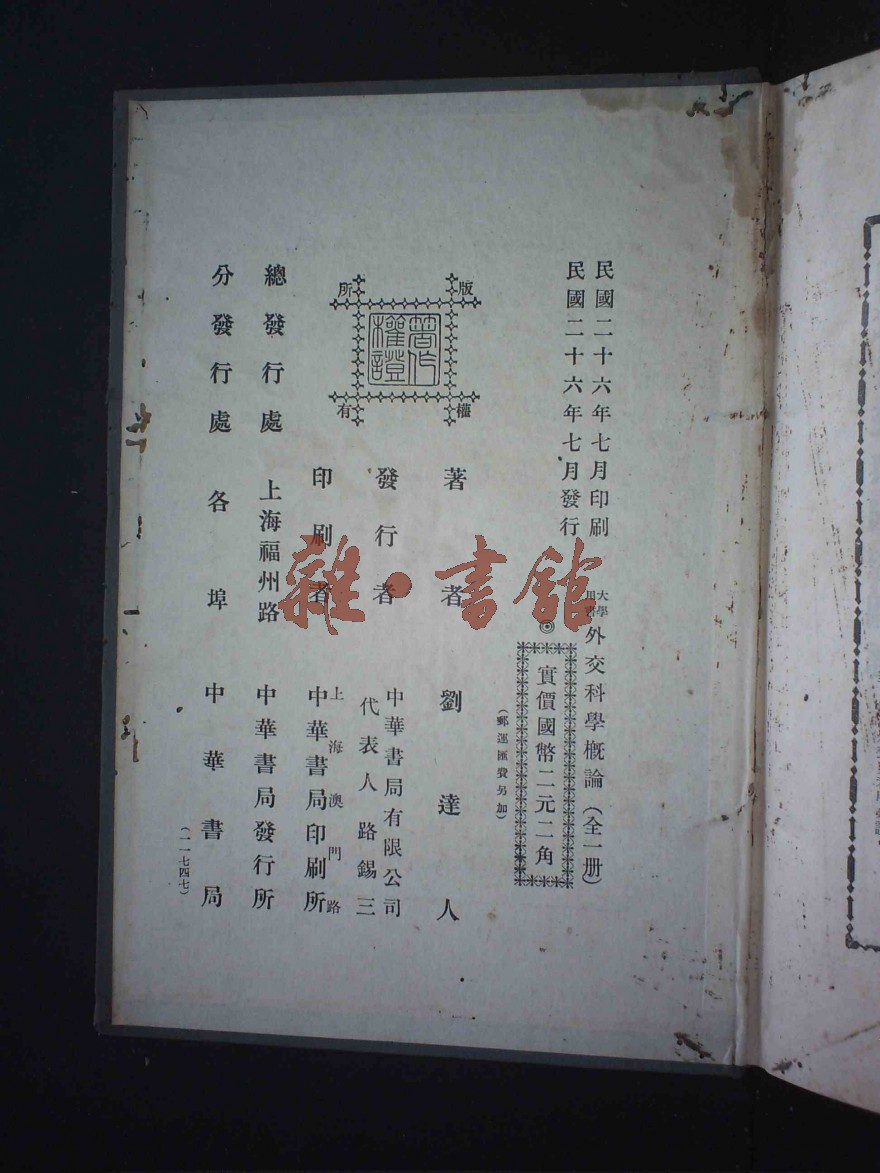 民國二十六年七月印刷
民國二十六年七月發行
大學用書
外交科學概論（全一册）
◎
實價國幣二元二角
（郵運匯費另加）
版權所有
著作權證
著者 劉達人
發行者 中華書局有限公司
代表人 路錫三
印刷者 上海澳門路
中華書局印刷所
總發行處 上海福州路 中華書局發行所
分發行處 各埠 中華書局
（一一七四七）
雜·書館